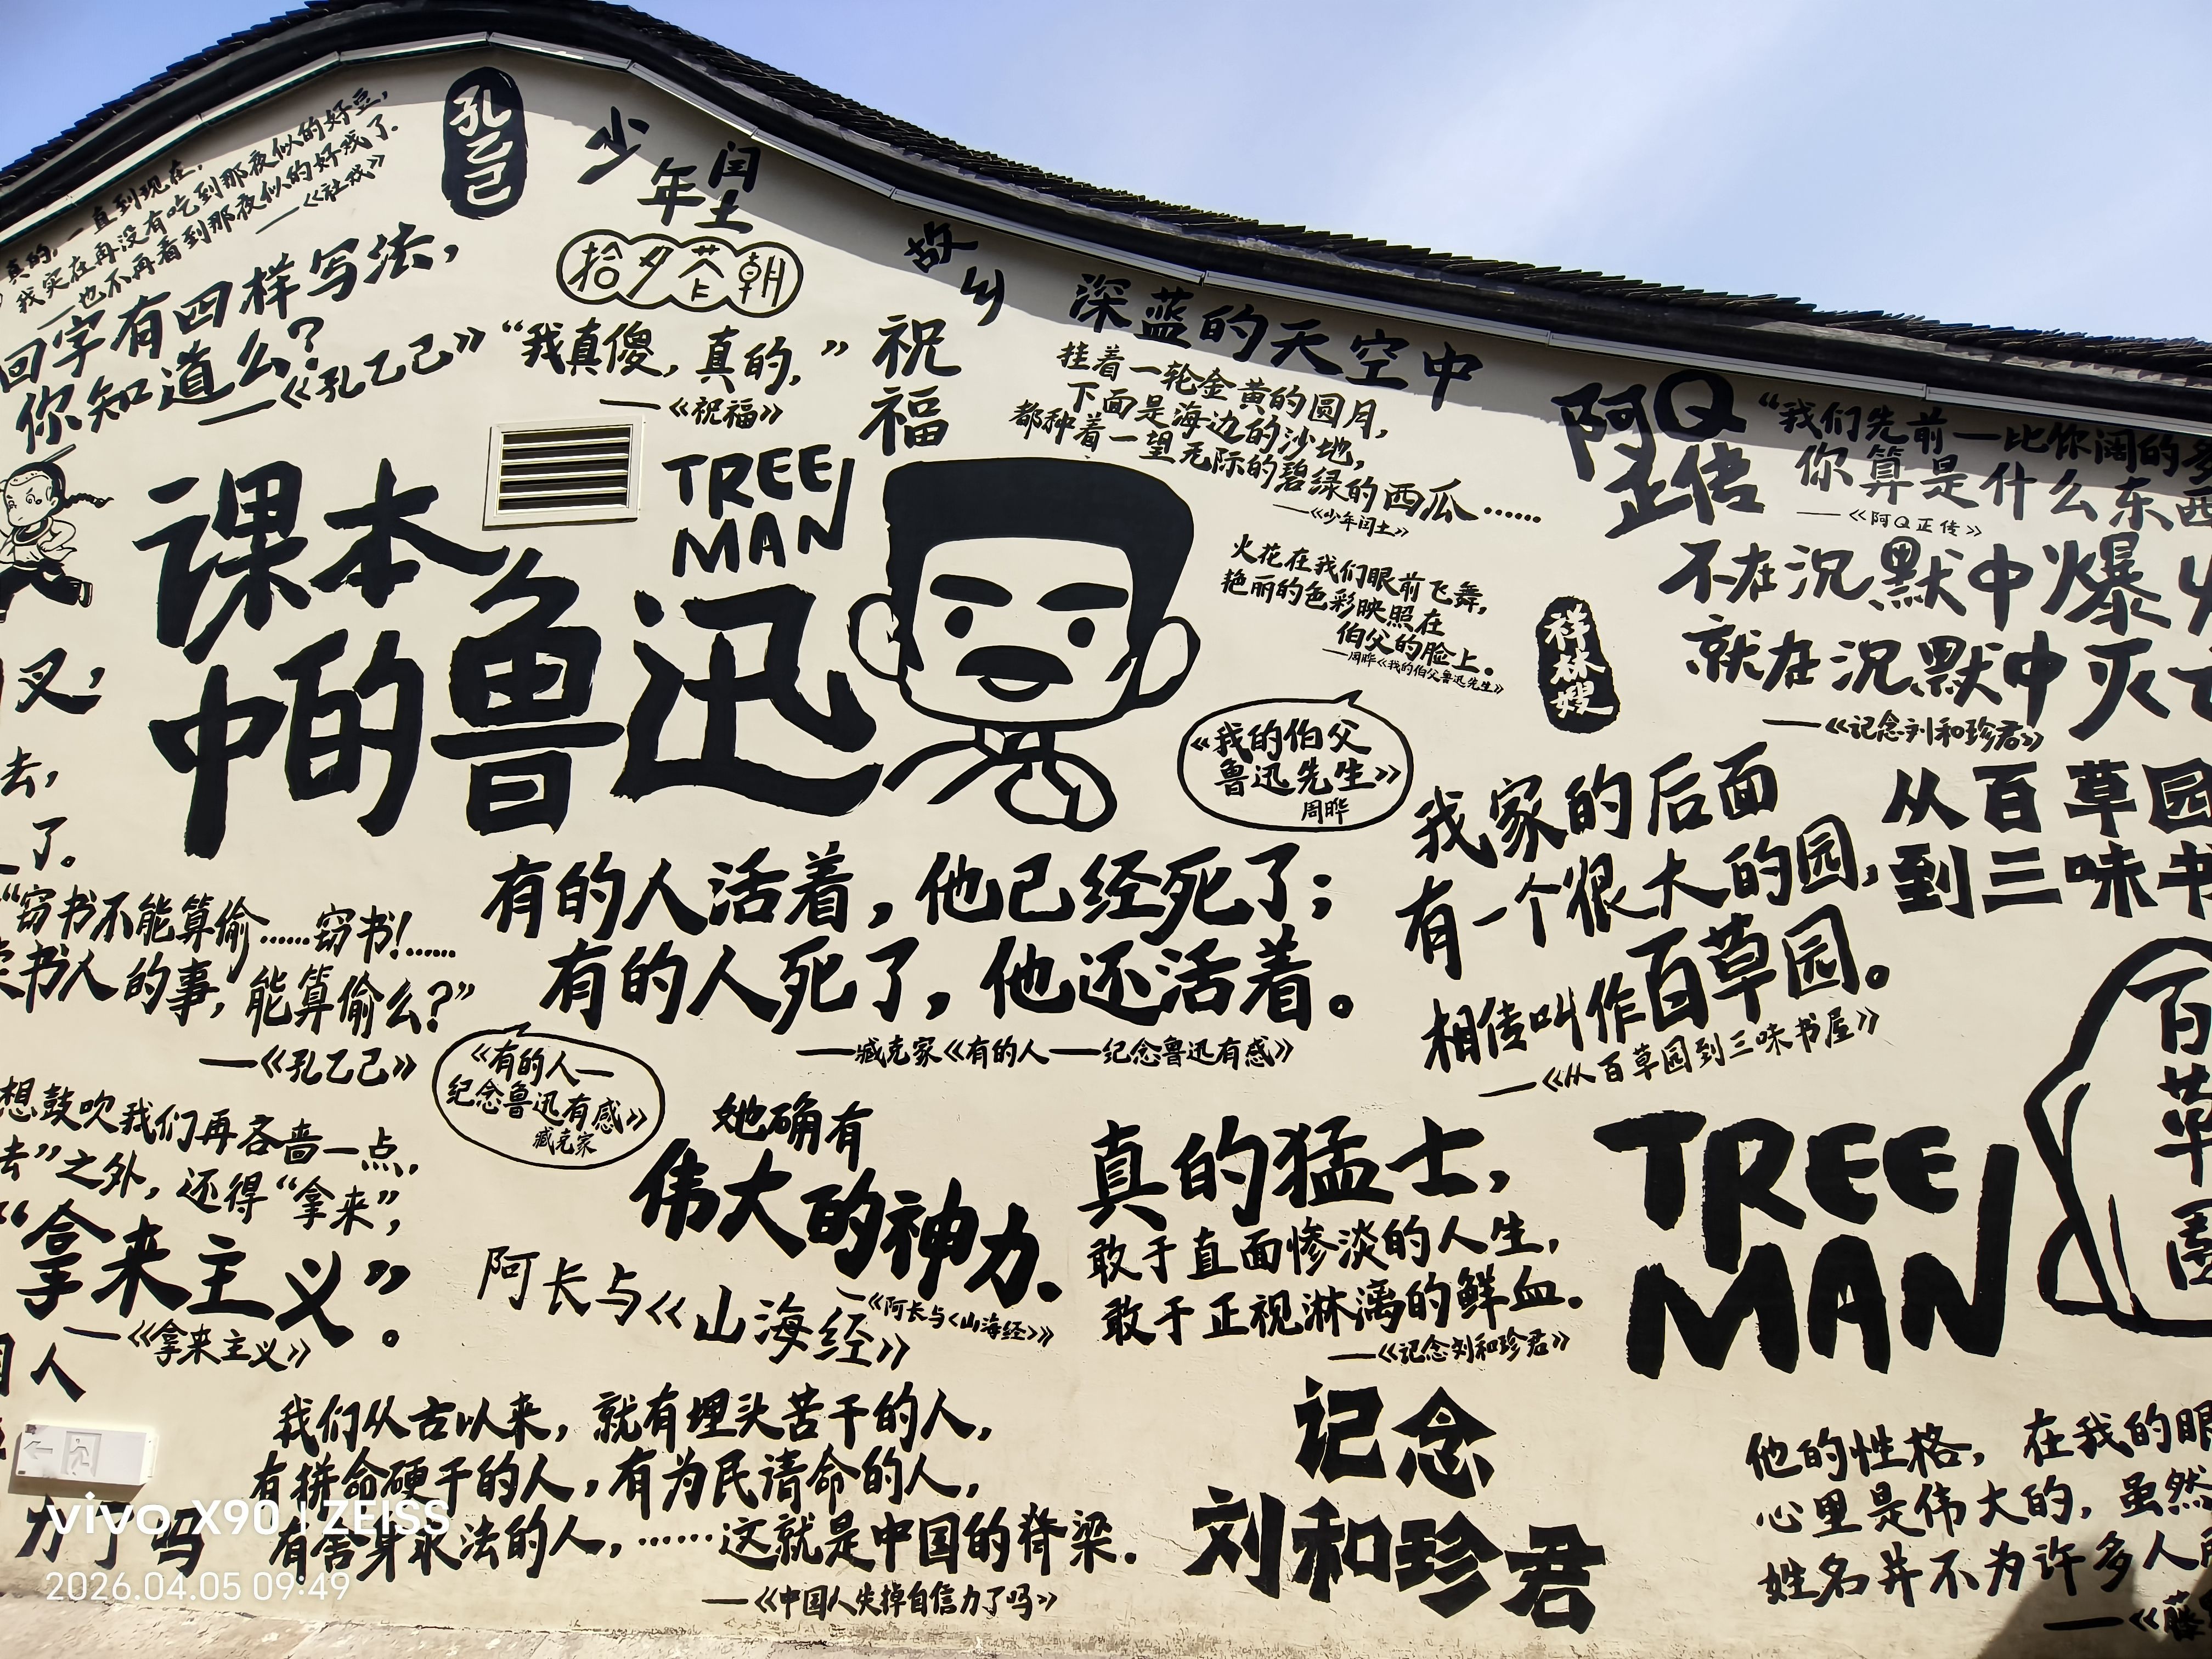 真的,一直到现在,
我实在再没有吃到那夜似的好豆,
——也不再看到那夜似的好戏了.
——《社戏》
孔乙己
少年闰土
拾夕花朝
故乡
回字有四样写法,
你知道么?
——《孔乙己》
“我真傻,真的,”
——《祝福》
祝福
深蓝的天空中
挂着一轮金黄的圆月,
下面是海边的沙地,
都种着一望无际的碧绿的西瓜……
——《少年闰土》
阿Q
正传
“我们先前—比你阔的多
你算是什么东西
——《阿Q正传》
TREE
MAN
课本
中的鲁迅
火花在我们眼前飞舞,
艳丽的色彩映照在
伯父的脸上。
——周晔《我的伯父鲁迅先生》
祥林嫂
不在沉默中爆
就在沉默中灭
——《记念刘和珍君》
《我的伯父
鲁迅先生》
周晔
叉,
去,
了。
我家的后面
有一个很大的园,
相传叫作百草园。
——《从百草园到三味书屋》
从百草园
到三味书
有的人活着,他已经死了;
有的人死了,他还活着。
——臧克家《有的人——纪念鲁迅有感》
“窃书不能算偷……窃书!……
书人的事,能算偷么?”
——《孔乙己》
《有的人—
纪念鲁迅有感》
臧克家
想鼓吹我们再吝啬一点,
去”之外,还得“拿来”,
“拿来主义”。
——《拿来主义》
人
她确有
伟大的神力.
——《阿长与〈山海经〉》
阿长与《山海经》
真的猛士,
敢于直面惨淡的人生,
敢于正视淋漓的鲜血.
——《记念刘和珍君》
TREE
MAN
百草園
我们从古以来,就有埋头苦干的人,
有拼命硬干的人,有为民请命的人,
有舍身求法的人,……这就是中国的脊梁.
——《中国人失掉自信力了吗》
力了吗
记念
刘和珍君
他的性格,在我的眼
心里是伟大的,虽然
姓名并不为许多人
——《藤
vivo X90 | ZEISS
2026.04.05 09:49